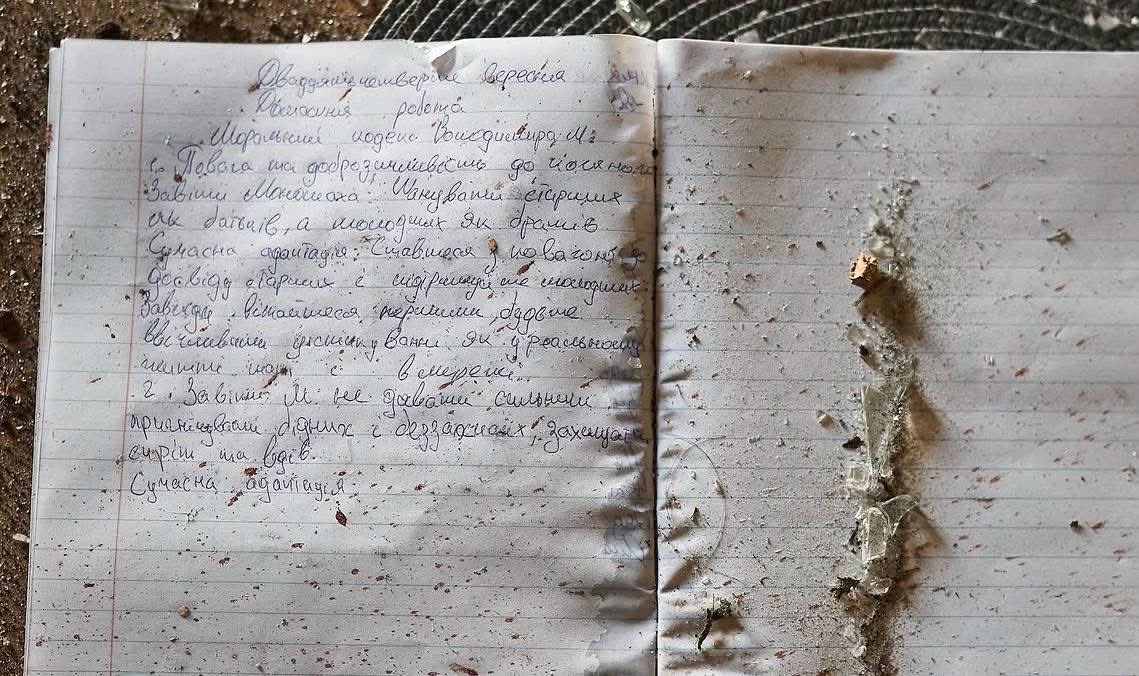 Двадцяте четверте вересня
Домашня робота
Моральний кодекс Володимира М:
1. Повага та доброзичливість до кожного
Завіти Мономаха: Шанувати старших
як батьків, а молодших як братів
Сучасна адаптація: Ставтеся з повагою до
досвіду старших і підтримуйте молодших.
Завжди вітайтеся першими будьте
ввічливими у спілкуванні як у реальному
житті так і в мережі.
2. Завіти М: не давати сильним
пригнічувати бідних і беззахисних, захищати
сиріт та вдів.
Сучасна адаптація